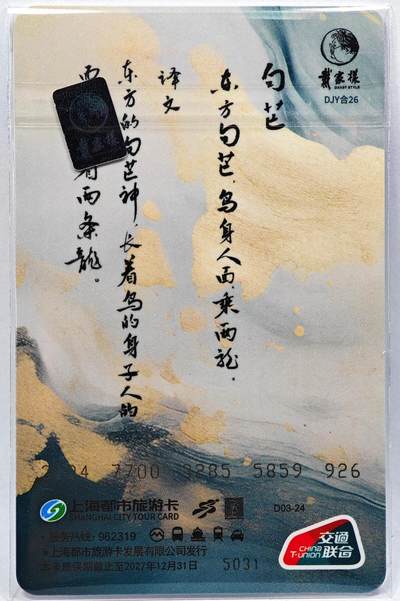 句芒
东方句芒，鸟身人面，乘两龙。
译文
东方的句芒神，长着鸟的身子人的
着两条龙。
戴家样
DAXEY STYLE
DJY合26
7700 3285 5859 926
上海都市旅游卡
SHANGHAI CITY TOUR CARD
D03-24
服务热线：962319
上海都市旅游卡发展有限公司发行
本卡质保期截止至2027年12月31日
5031
交通联合
CHINA T-UNION